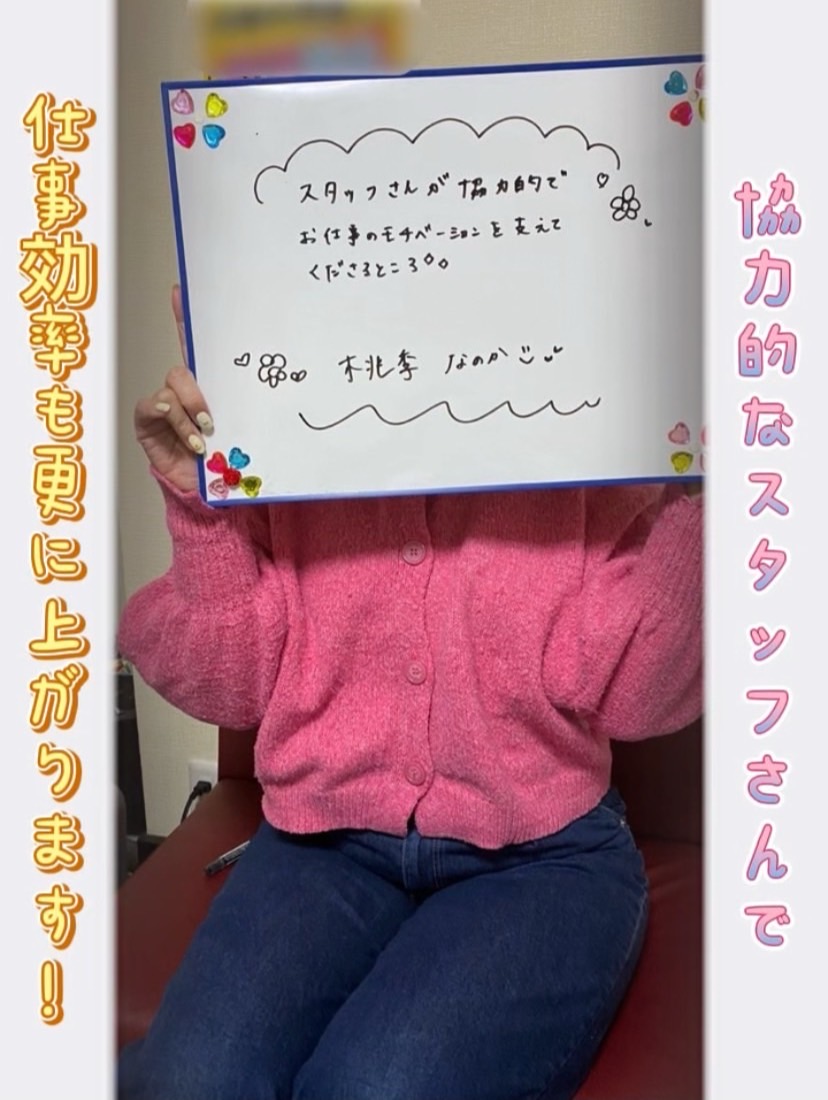 協力的なスタッフさんで
仕事効率も更に上がります！
スタッフさんが協力的で
お仕事のモチベーションを支えて
くださるところ
桃季 なのか